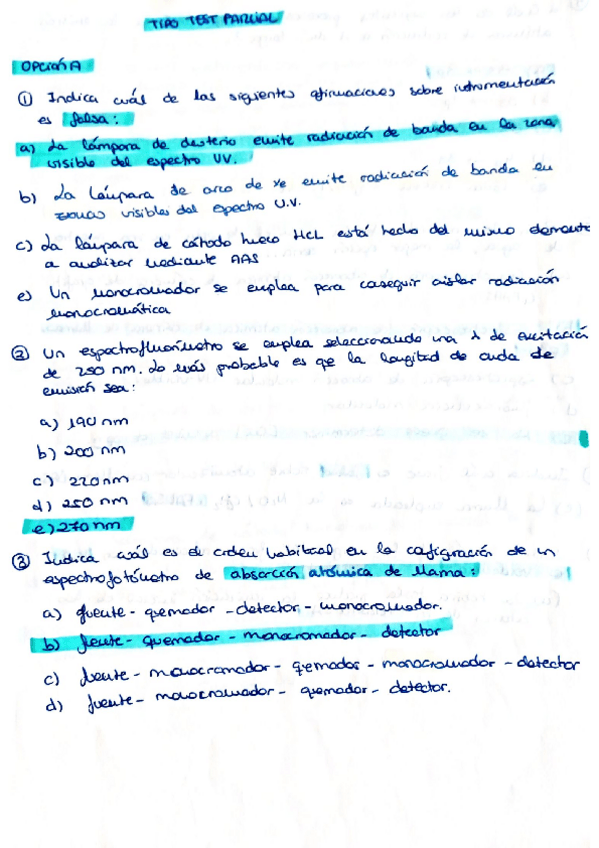 TIPO TEST PARCIAL
OPCIÓN A
① Indica cuál de las siguientes afirmaciones sobre instrumentación
es falsa:
a) La lámpara de deuterio emite radiación de banda en la zona
visible del espectro UV.
b) La lámpara de arco de xe emite radiación de banda en
zonas visibles del espectro U.V.
c) La lámpara de cátodo hueco HCL está hecha del mismo elemento
a analizar mediante AAS
e) Un monocromador se emplea para conseguir aislar radiación
monocromática
② Un espectrofluorímetro se emplea seleccionando una λ de excitación
de 250 nm. Lo más probable es que la longitud de onda de
emisión sea:
a) 190 nm
b) 200 nm
c) 220 nm
d) 250 nm
e) 270 nm
③ Indica cuál es el orden habitual en la configuración de un
espectrofotómetro de absorción atómica de llama:
a) fuente - quemador - detector - monocromador.
b) fuente - quemador - monocromador - detector
c) fuente - monocromador - quemador - monocromador - detector
d) fuente - monocromador - quemador - detector.